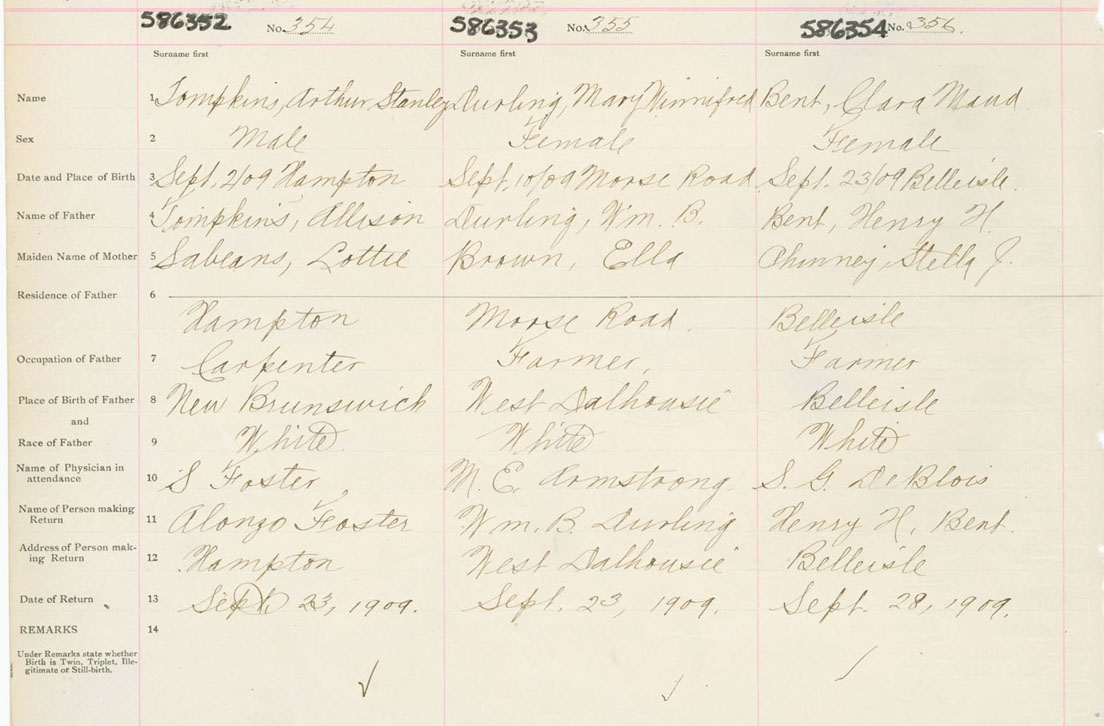 586352 No. 354 586353 No. 355 586354 No. 356.
Surname first Surname first Surname first
Name 1 Tompkins, Arthur Stanley Durling, Mary Winnifred Bent, Clara Maud
Sex 2 Male Female Female
Date and Place of Birth 3 Sept. 2/09 Hampton Sept. 10/09 Morse Road Sept. 23/09 Belleisle.
Name of Father 4 Tompkins, Allison Durling, Wm. B. Bent, Henry H.
Maiden Name of Mother 5 Sabeans, Lottie Brown, Ella Phinney, Stella J.
Residence of Father 6
Hampton Morse Road. Belleisle
Occupation of Father 7 Carpenter Farmer, Farmer
Place of Birth of Father 8 New Brunswick West Dalhousie Belleisle
and
Race of Father 9 White White White
Name of Physician in
attendance 10 S Foster, M. E. Armstrong S. G. DeBlois
Name of Person making
Return 11 Alonzo Foster Wm. B. Durling Henry H. Bent.
Address of Person mak-
ing Return 12 Hampton West Dalhousie Belleisle
Date of Return 13 Sept. 23, 1909. Sept. 23, 1909. Sept. 28, 1909.
REMARKS 14
Under Remarks state whether
Birth is Twin, Triplet, Ille-
gitimate or Still-birth.